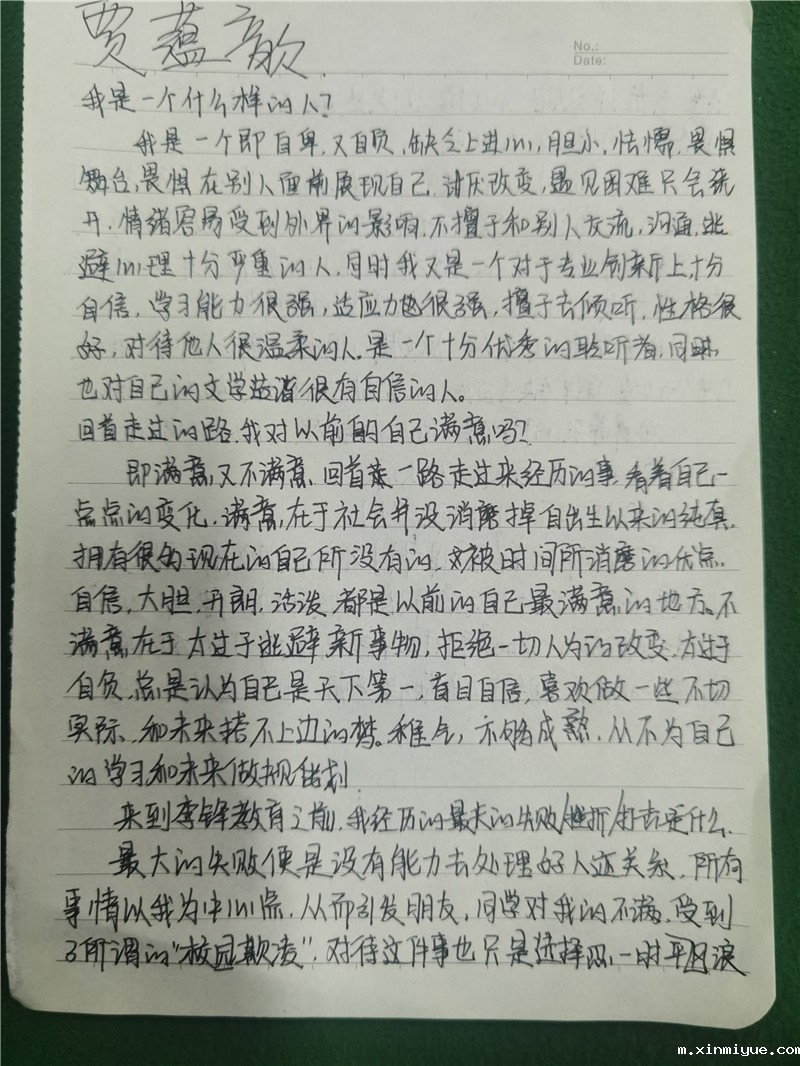 贾蕴歆
No.:
Date:
我是一个什么样的人?
我是一个即自卑,又自负,缺乏上进心,胆小,怯懦,畏惧
舞台,畏惧在别人面前展现自己,讨厌改变,遇见困难只会绕
开,情绪容易受到外界的影响,不擅于和别人交流,沟通,逃
避心理十分严重的人,同时我又是一个对于专业创新上十分
自信,学习能力很强,适应力也很强,擅于去倾听,性格很
好,对待他人很温柔的人.是一个十分优秀的聆听者,同时
也对自己的文学造诣很有自信的人。
回首走过的路.我对以前的自己满意吗?
即满意,又不满意,回首走一路走过来经历的事,看着自己一
点点的变化.满意,在于社会并没消磨掉自出生以来的纯真.
拥有很多现在的自己所没有的,被时间所消磨的优点.
自信,大胆,开朗,活泼,都是以前的自己最满意的地方。不
满意在于太过于逃避新事物,拒绝一切人为的改变.太过于
自负,总是认为自己是天下第一,盲目自信,喜欢做一些不切
实际,和未来搭不上边的梦。稚气,不够成熟,从不为自己
的学习和未来做规划
来到李锋教育之前,我经历的最大的失败/挫折/打击是什么.
最大的失败便是没有能力去处理好人际关系,所有
事情以我为中心点,从而引发朋友,同学对我的不满,受到
了所谓的"校园欺凌",对待这件事也只是选择 一时 平风浪
m.xinmiyue.com